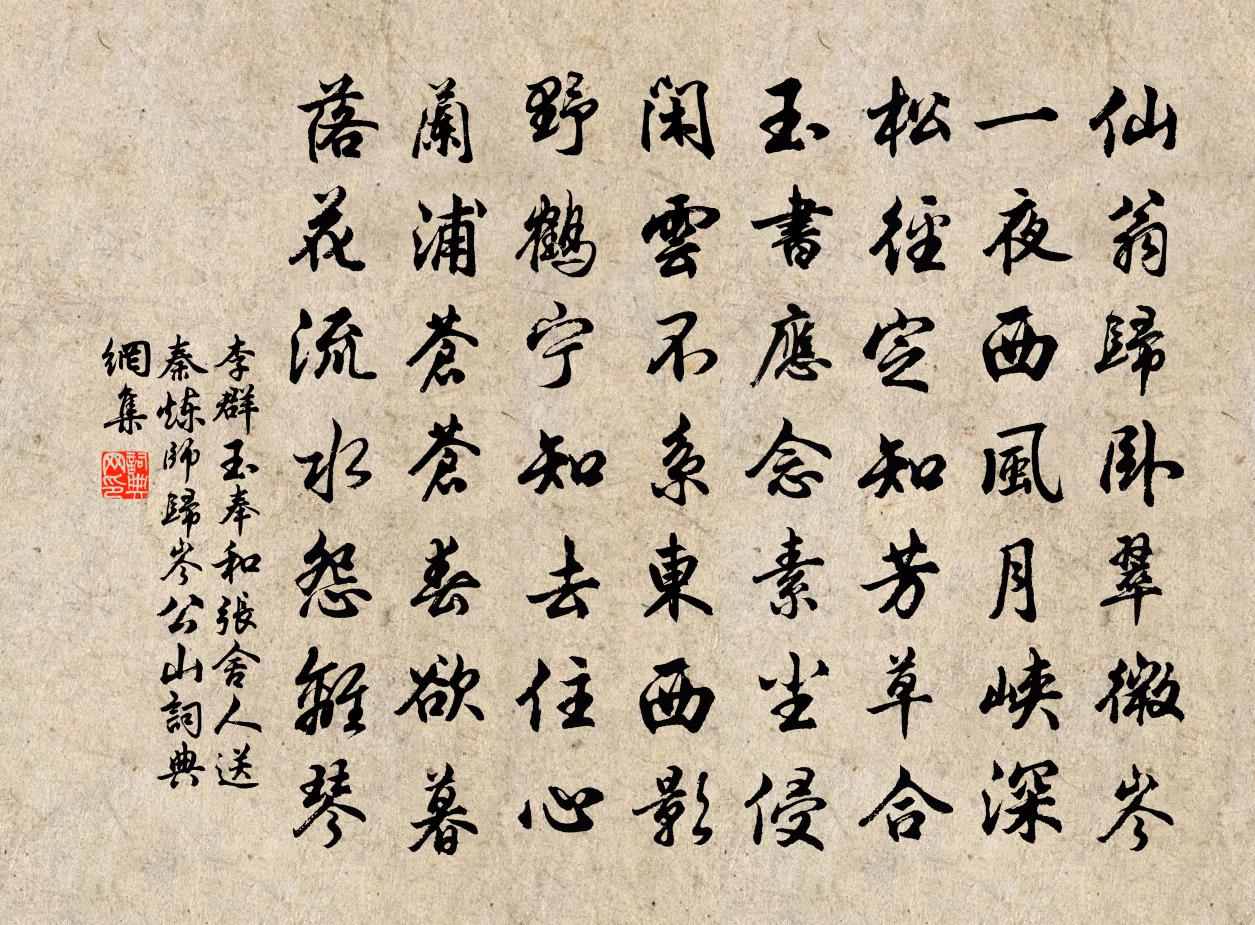 仙翁歸卧翠微岑
一夜西風月峽深
松徑定知芳草合
玉書應念素尘侵
閑雲不系東西影
野鶴宁知去住心
蘭浦蒼蒼春欲暮
落花流水怨離琴
李群玉奉和張舍人送
秦炼師歸岑公山詞典
網集
詞典网印